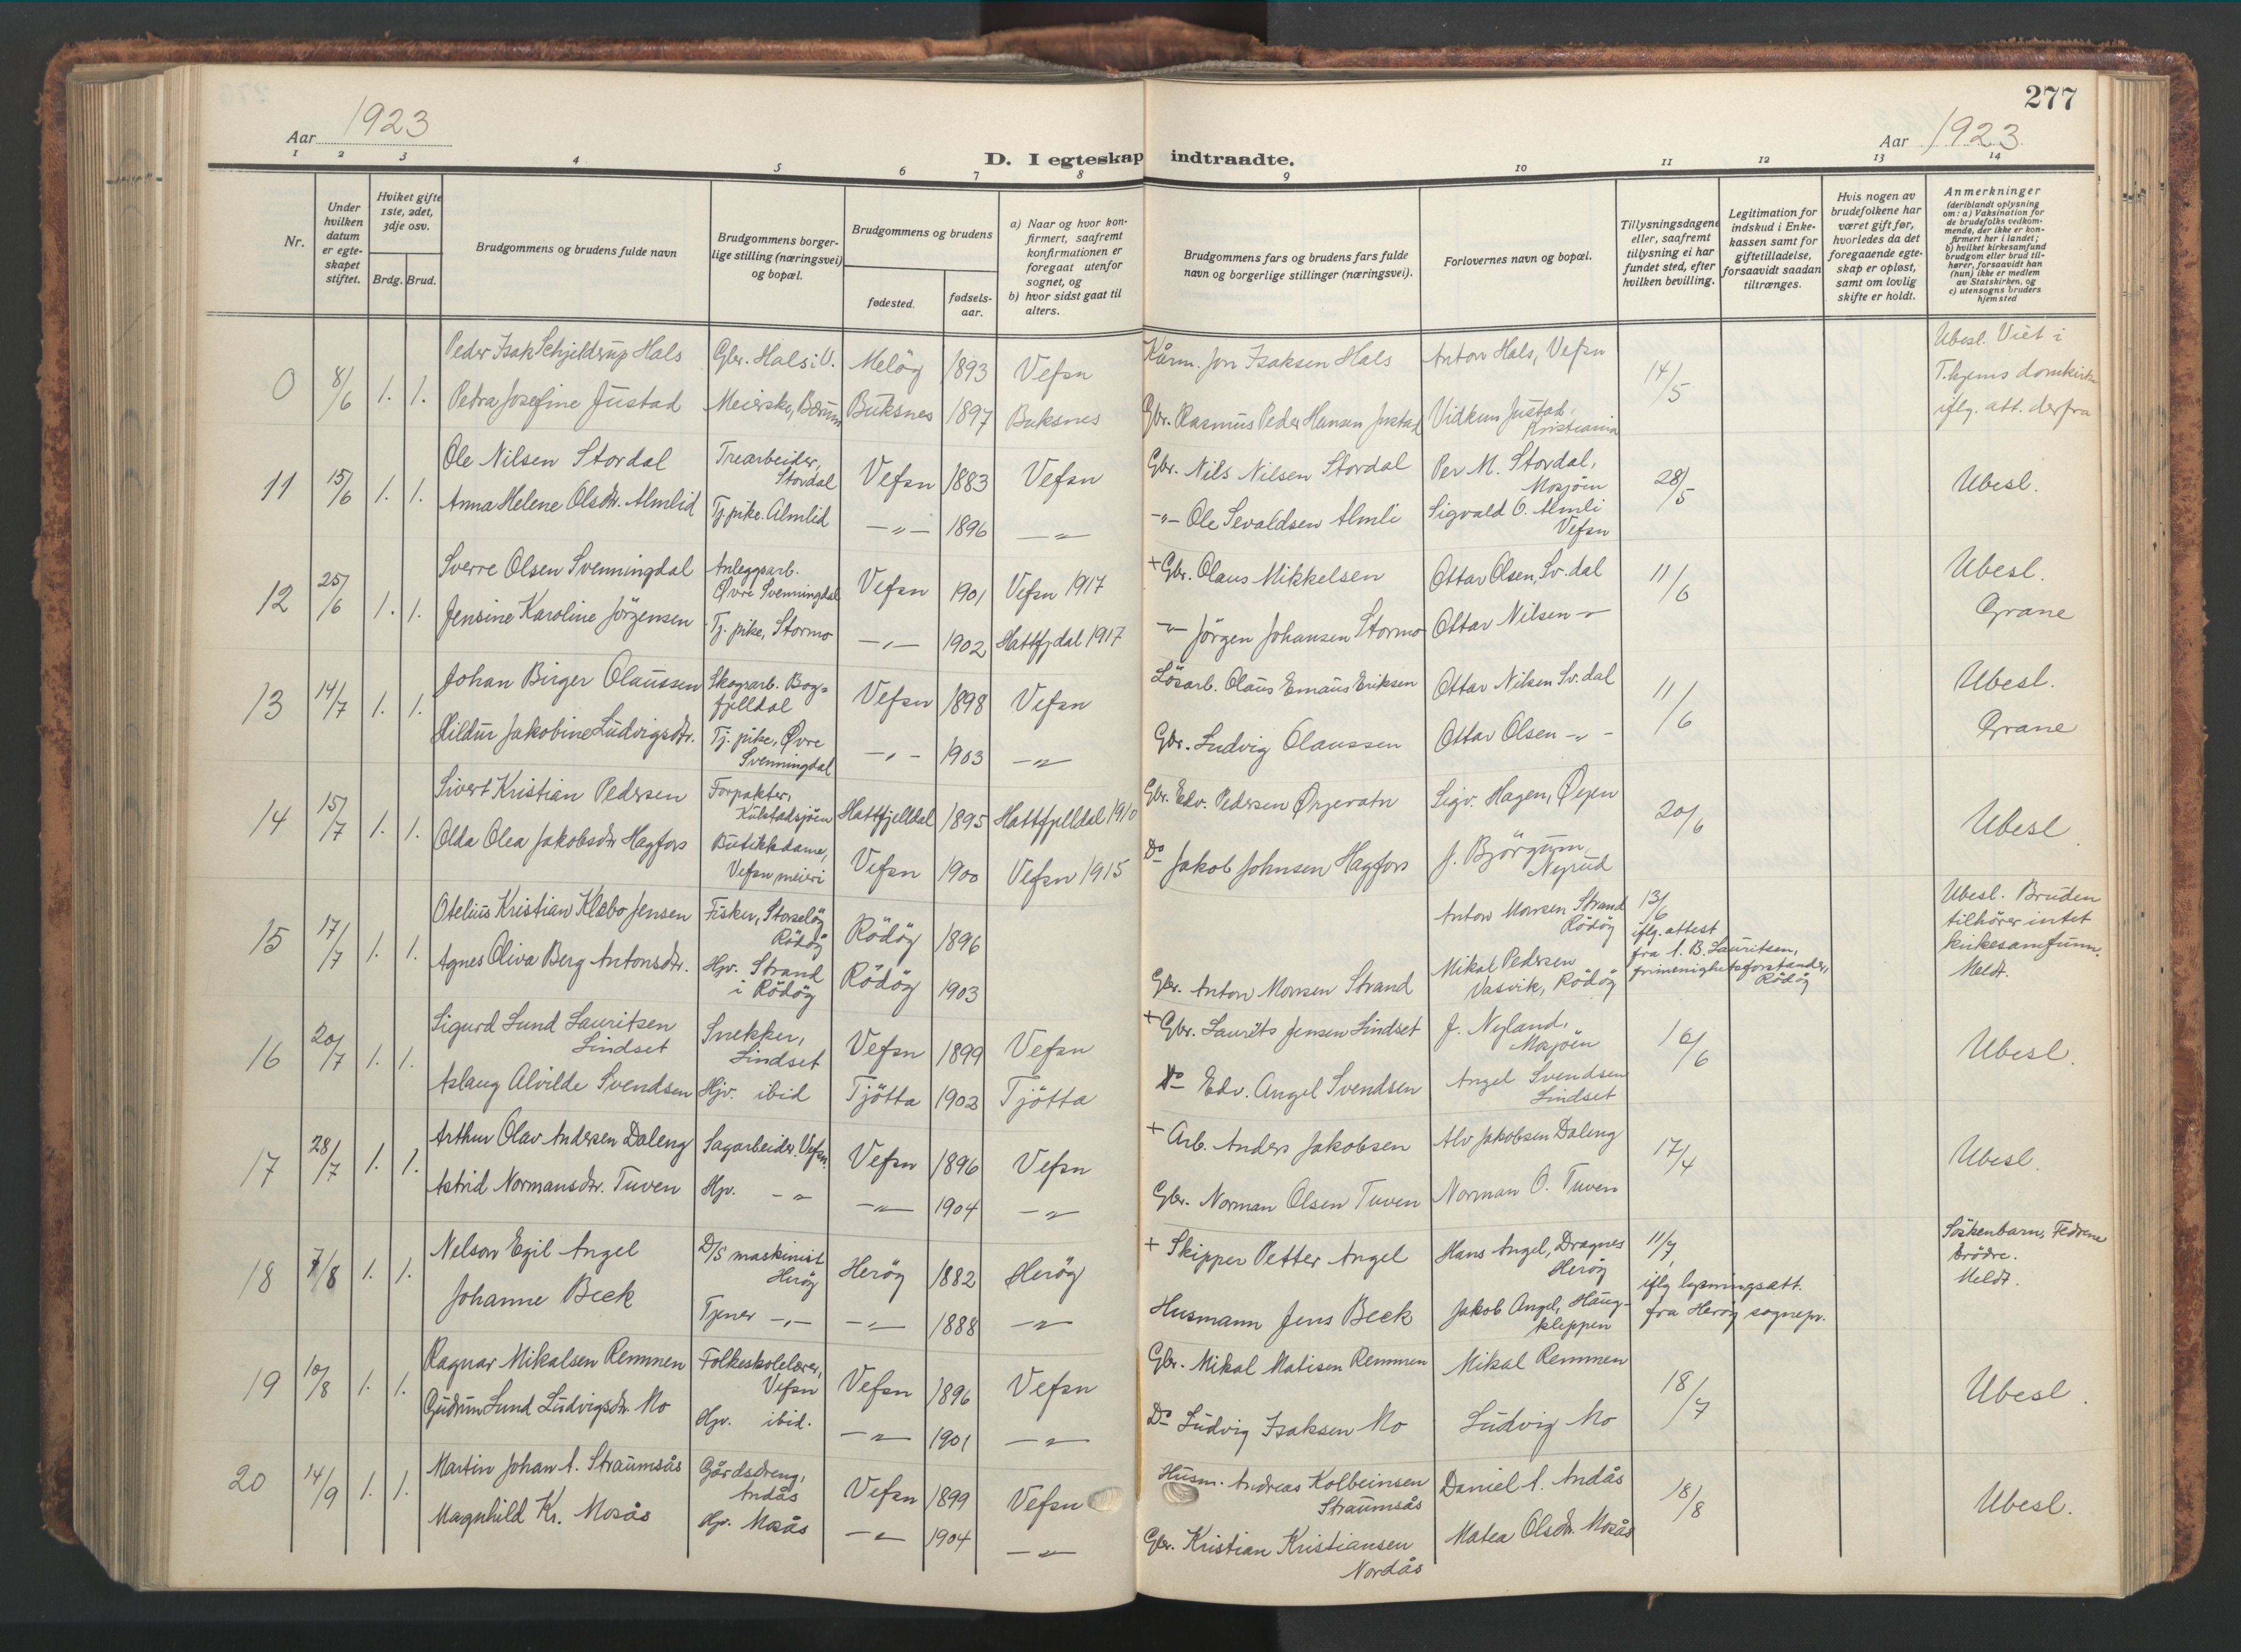 277
Aar 1923
Aar 1923
D. I egteskap indtraadte.
1 2 3 4 5 6 7 8 9 10 11 12 13 14
Nr.
Under hvilken datum er egteskapet stiftet.
Hviket gifte 1ste, 2det, 3dje osv.
Brdg. Brud.
Brudgommens og brudens fulde navn
Brudgommens borgerlige stilling (næringsvei) og bopæl.
Brudgommens og brudens
fødested.
fødselsaar.
a) Naar og hvor konfirmert, saafremt konfirmationen er foregaat utenfor sognet, og
b) hvor sidst gaat til alters.
Brudgommens fars og brudens fars fulde navn og borgerlige stillinger (næringsvei).
Forlovernes navn og bopæl.
Tillysningsdagene eller, saafremt tillysning ei har fundet sted, efter hvilken bevilling.
Legitimation for indskud i Enkekassen samt for giftetilladelse, forsaavidt saadan tiltrænges.
Hvis nogen av brudefolkene har været gift før, hvorledes da det foregaaende egteskap er opløst, samt om lovlig skifte er holdt.
Anmerkninger (deriblandt oplysning om: a) Vaksination for de brudefolks vedkommende, der ikke er konfirmert her i landet; b) hvilket kirkesamfund brudgom eller brud tilhører, forsaavidt han (hun) ikke er medlem av Statskirken, og c) utensogns bruders hjemsted
0 8/6 1. 1. Peder Isak Schjelderup Hals Gbr. Hals i V. Meløy 1893 Vefsn Kårm. Jon Isaksen Hals Anton Hals, Vefsn 14/5 Ubesl. Viet i
T.hjems domkirke
iflg. att. derfra
Petra Josefine Justad Meierske, Bærum Buksnes 1897 Buksnes Gbr. Rasmus Peder Hansen Justad Vidkun Justad, Kristiania
11 15/6 1. 1. Ole Nilsen Stordal Trearbeider, Stordal Vefsn 1883 Vefsn Gbr. Nils Nilsen Stordal Per M. Stordal, Mosjöen 28/5 Ubesl.
Anna Helene Olsdtr. Almlid Tj. pike. Almlid -"- 1896 -"- -"- Ole Sevaldsen Almli Sigvald O. Almli Vefsn
12 25/6 1. 1. Sverre Olsen Svenningdal Anleggsarb. Øvre Svenningdal Vefsn 1901 Vefsn 1917 + Gbr. Olaus Mikkelsen Ottar Olsen, Sv.dal 11/6 Ubesl.
Grane
Jensine Karoline Jörgensen Tj. pike, Stormo -"- 1902 Hattfjdal 1917 -"- Jörgen Johansen Stormo Ottar Nilsen -"-
13 14/7 1. 1. Johan Birger Olaussen Skogsarb. Bogfjelldal Vefsn 1898 Vefsn Lösarb. Olaus Emaus Eriksen Ottar Nilsen Sv.dal 11/6 Ubesl.
Grane
Hildur Jakobine Ludvigsdtr. Tj. pike, Øvre Svenningdal -"- 1903 -"- Gbr. Ludvig Olaussen Ottar Olsen -"-
14 15/7 1. 1. Sivert Kristian Pedersen Forpakter, Kulstadsjöen Hattfjelldal 1895 Hattfjelldal 1910 Gbr. Edv. Pedersen Sigv. Hagen, Øyen 20/6 Ubesl
Olda Olea Jakobsdtr Hagfors Butikkdame, Vefsn meieri Vefsn 1900 Vefsn 1915 Do Jakob Johnsen Hagfors J. Björgum, Nyrud
15 17/7 1. 1. Otelius Kristian Klæbo Jensen Fisker, Storselöy Rödöy Rödöy 1896 Anton Monsen Strand Rödöy 13/6 iflg. attest
fra A. B. Lauritsen,
frimenighetsforstander, Rödöy
Ubesl. Bruden
tilhörer intet
kirkesamfunn.
Meldt.
Agnes Oliva Berg Antonsdtr. Hjv. Strand i Rödöy Rödöy 1903 Gbr. Anton Monsen Strand Mikal Pedersen Vasvik, Rödöy
16 20/7 1. 1. Sigurd Lund Lauritsen Lindset Snekker, Lindset Vefsn 1899 Vefsn + Gbr. Laurits Jensen Lindset J. Nyland, Mosjöen 16/6 Ubesl.
Aslaug Alvilde Svendsen Hjv. ibid Tjötta 1902 Tjötta Do Edv. Angel Svendsen Angel Svendsen Lindset
17 28/7 1. 1. Arthur Olav Andersen Daleng Sagarbeider. Vefsn. Vefsn 1896 Vefsn + Arb. Anders Jakobsen Alv Jakobsen Daleng 17/4 Ubesl.
Astrid Normansdtr. Tuven Hjv. -"- -"- 1904 -"- Gbr. Norman Olsen Tuven Norman O. Tuven
18 7/8 1. 1. Nelson Egil Angel D/S maskinist Heröy Heröy 1882 Heröy + Skipper Petter Angel Hans Angel, Dragnes Heröy 11/7,
iflg lysningsatt.
fra Heröy sognepr.
Söskenbarn, Fedrene
brödre.
Meldt.
Johanne Beck Tjener -"- -"- 1888 -"- Husmann Jens Beck Jakob Angel, Haugkleppen
19 10/8 1. 1. Ragnar Mikalsen Remmen Folkeskolelærer, Vefsn Vefsn 1896 Vefsn Gbr. Mikal Matisen Remmen Mikal Remmen 18/7 Ubesl.
Gudrun Lund Ludvigsdtr. Mo Hjv. ibid. -"- 1901 -"- Do Ludvig Isaksen Mo Ludvig Mo
20 14/9 1. 1. Martin Johan A. Straumsås Gårdsdreng, Andås Vefsn 1899 Vefsn Husm. Andreas Kolbeinsen Straumsås Daniel A. Andås 18/8 Ubesl.
Magnhild Kr. Mosås Hjv. Mosås -"- 1904 -"- Gbr. Kristian Kristiansen Nordås Matea Olsdtr. Mosås